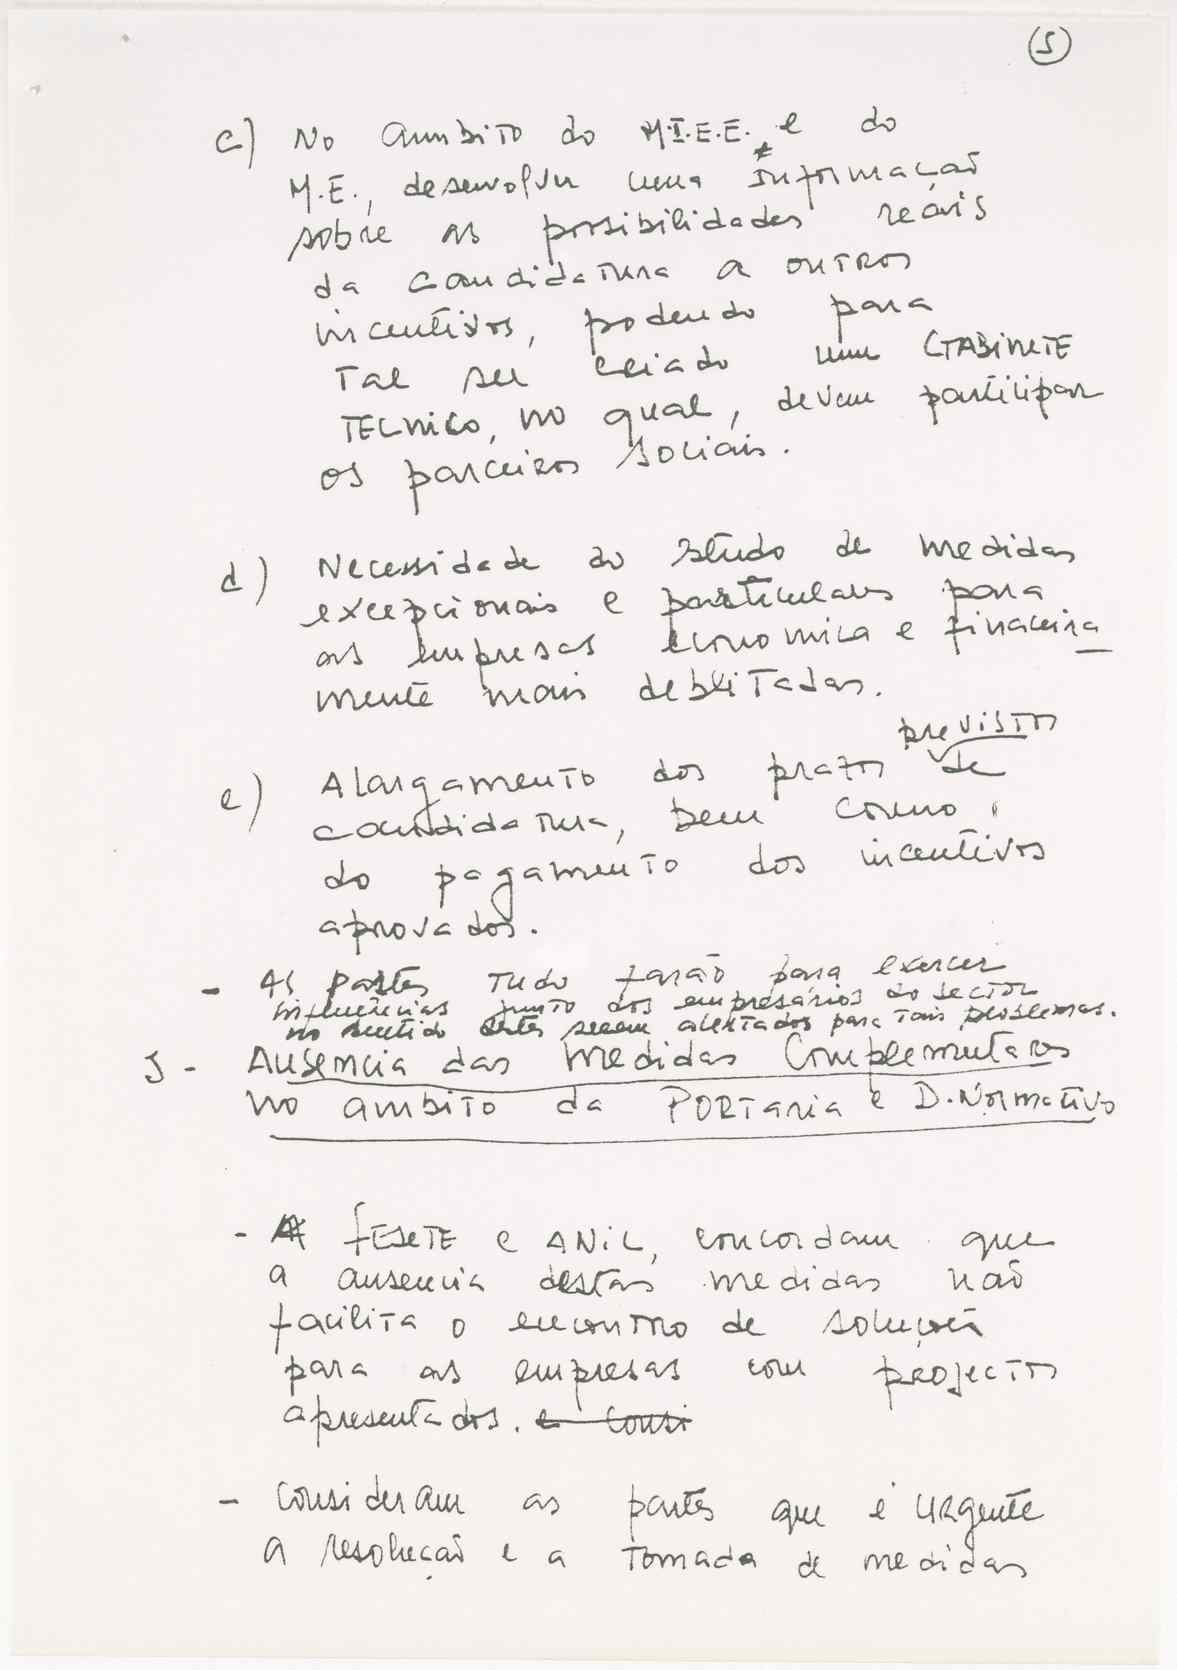 (5)
c) No ambito do M.I.E.E. e do
M.E., desenvolver uma informação
sobre as possibilidades reáis
da candidatura a outros
incentivos, podendo para
tal ser criado um GABINETE
TECNICO, no qual, devem participar
os parceiros sociais.
d) Necessidade do estudo de medidas
excepcionais e particulares para
as empresas economica e finaceira
mente mais debilitadas.
previstos
e) Alargamento dos prazos de
candidatura, bem como
do pagamento dos incentivos
aprovados.
- As partes tudo farão para exercer
influências junto dos empresários do sector
no sentido destes serem alertados para tais problemas.
5 - Ausencia das medidas Complementares
no ambito da PORTaria e D. Normativo
- A fESETE e ANiL, concordam que
a ausencia destas medidas não
facilita o encontro de soluções
para as empresas com projectos
apresentados. e consi
- Consideram as partes que é urgente
a resolução e a tomada de medidas